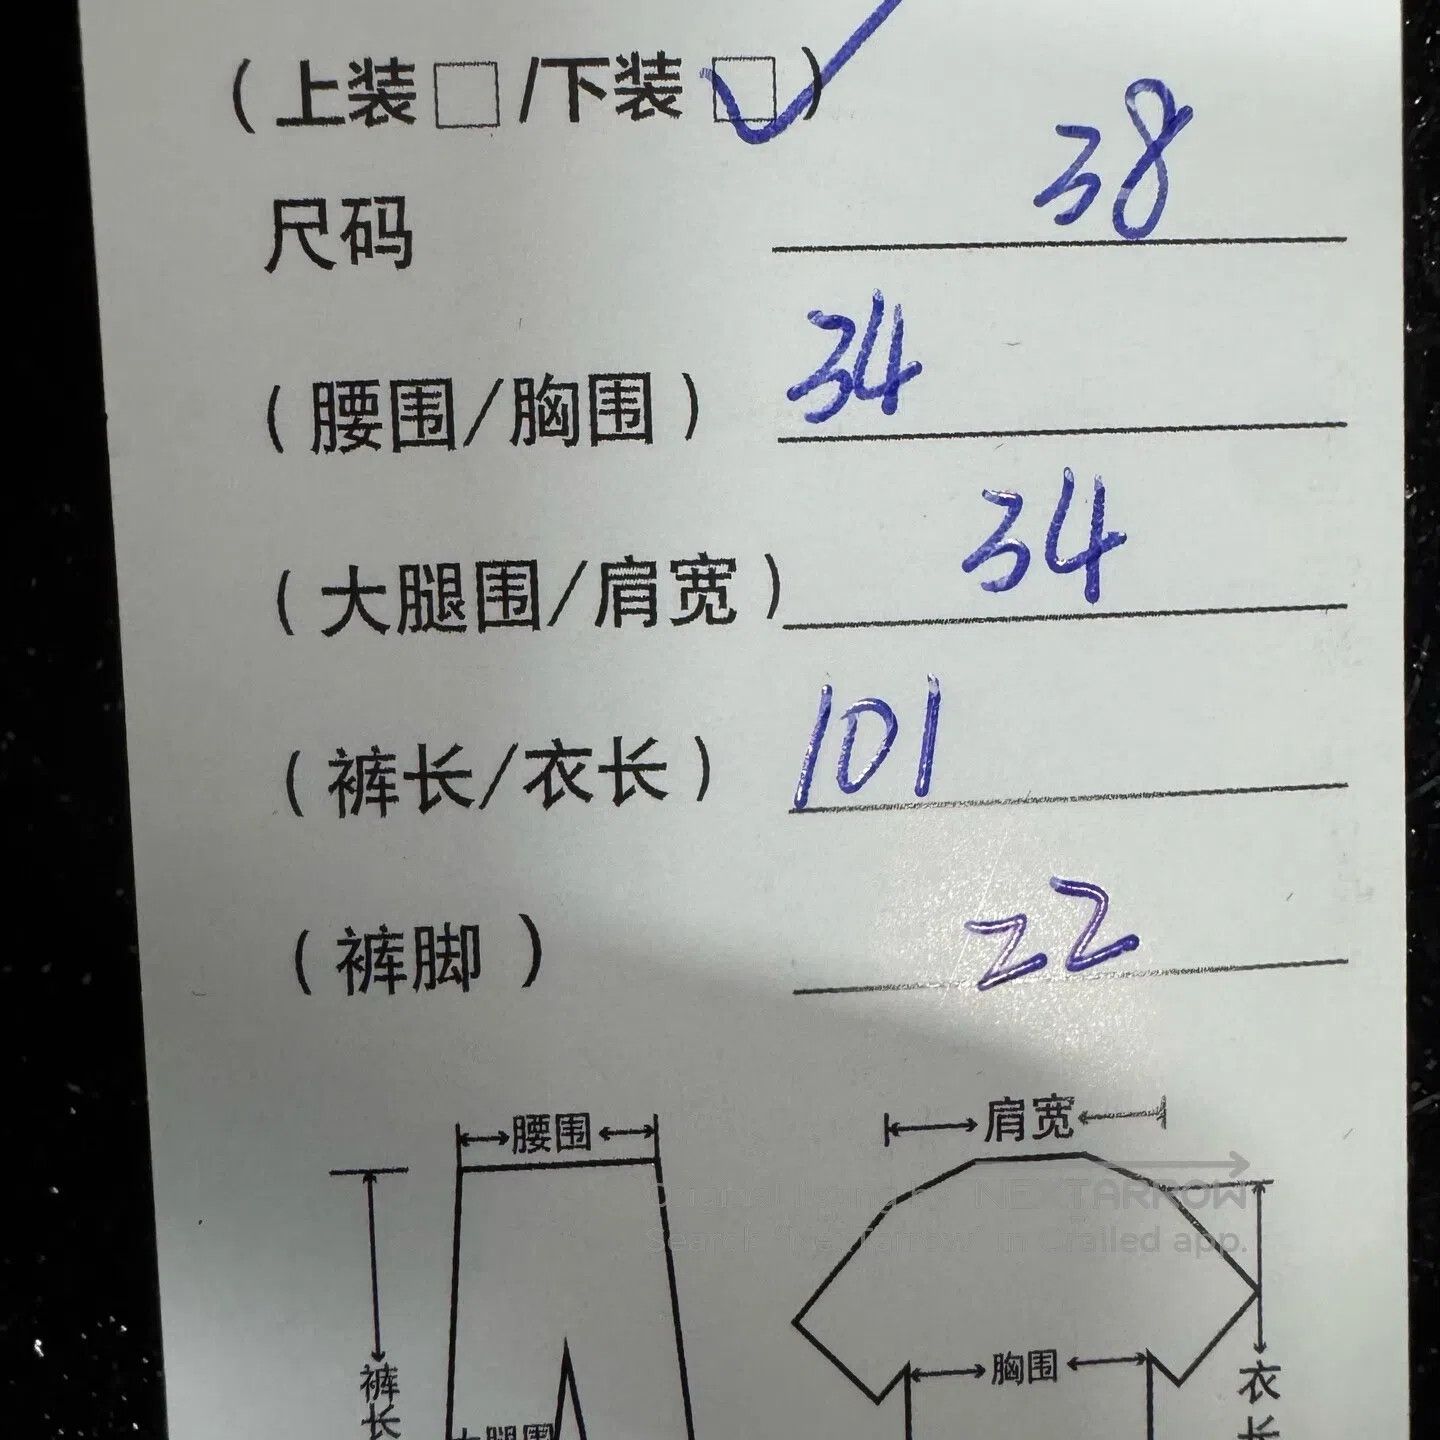 (上装□/下装□)
尺码 38
(腰围/胸围) 34
(大腿围/肩宽) 34
(裤长/衣长) 101
(裤脚) 22
腰围
肩宽
NEXTARROW
Search "Nextarrow" in Grailed app.
胸围
裤长
衣长
大腿围